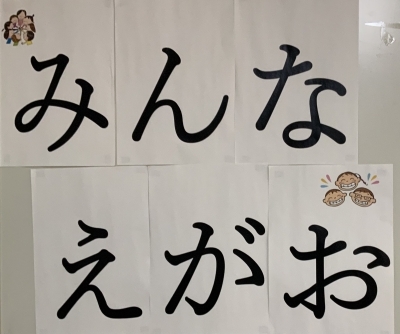 みんな
えがお